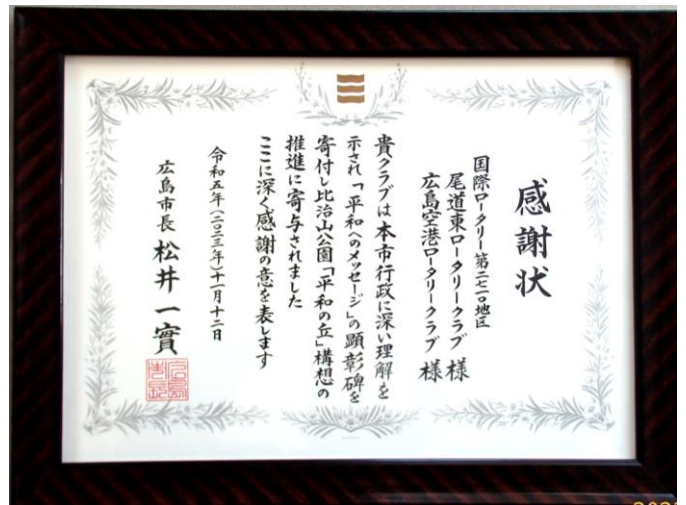 感謝状
国際ロータリー第二七一〇地区
尾道東ロータリークラブ 様
広島空港ロータリークラブ 様
貴クラブは本市行政に深い理解を
示され「平和へのメッセージ」の顕彰碑を
寄付し比治山公園「平和の丘」構想の
推進に寄与されました
ここに深く感謝の意を表します
令和五年(二〇二三年)十一月十二日
広島市長 松井一實